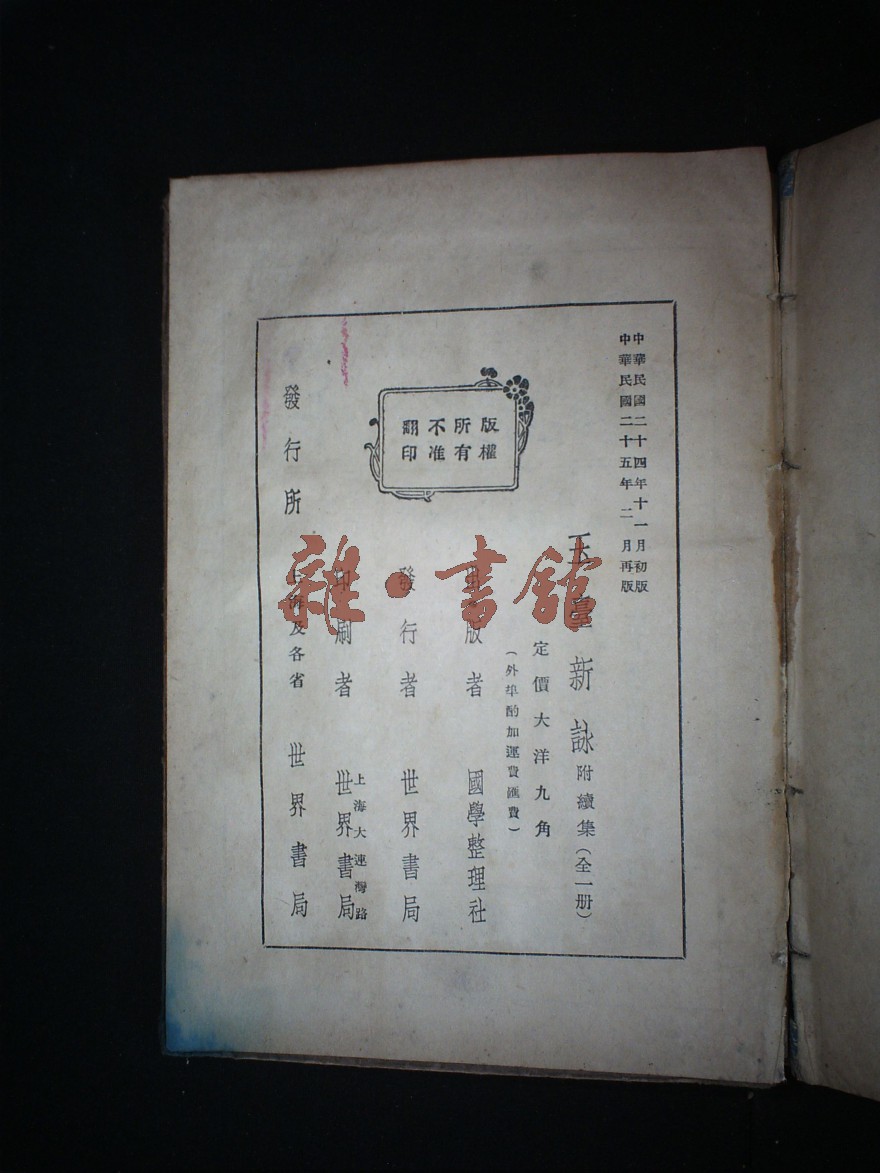 中華民國二十四年十一月初版
中華民國二十五年二月再版
玉臺新詠附續集(全一册)
定價大洋九角
(外埠酌加運費匯費)
版權
所有
不准
翻印
出版者 國學整理社
發行者 世界書局
印刷者 上海大連灣路 世界書局
發行所 上海及各省 世界書局
雜·書館